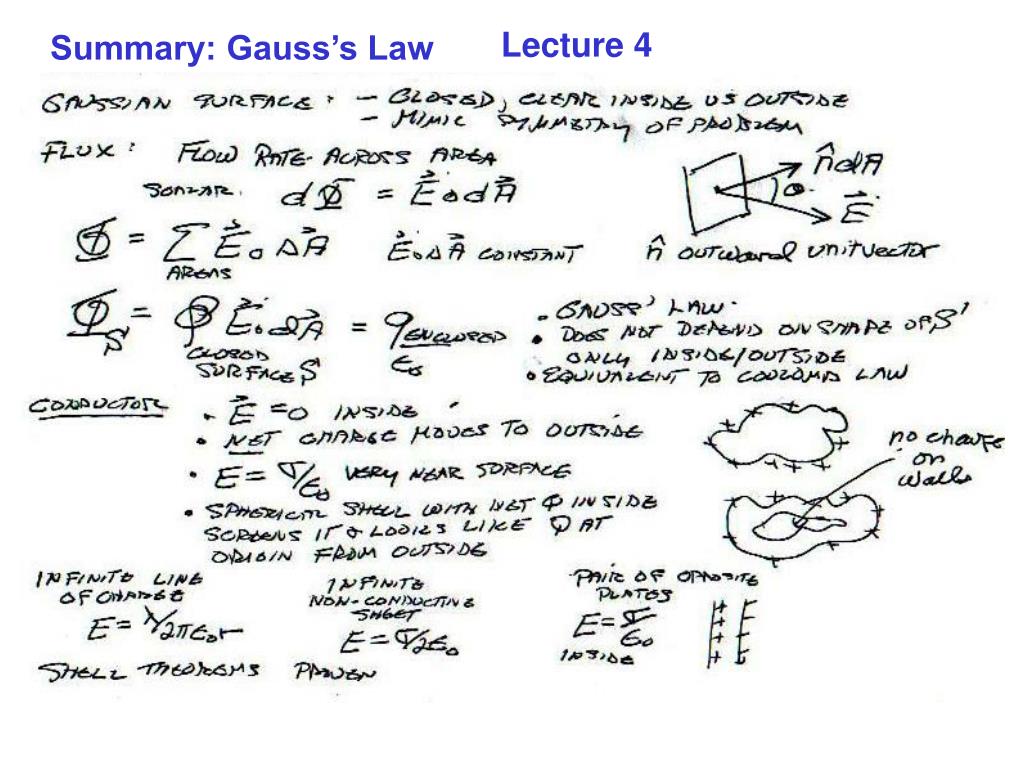 Summary: Gauss's Law
Lecture 4
GAUSSIAN SURFACE: - CLOSED, CLEAR INSIDE VS OUTSIDE
- MIMIC SYMMETRY OF PROBLEM
FLUX: FLOW RATE ACROSS AREA
SCALAR. dΦ = E⃗ ∘ dA⃗
n̂dA
θ
E⃗
Φ = Σ E⃗ ∘ ΔA⃗ E⃗∘ΔA⃗ CONSTANT
AREAS
n̂ outward unit vector
Φ_S = ∮ E⃗∘dA⃗ = q_ENCLOSED / ε₀
CLOSED
SURFACE S
• GAUSS' LAW
• DOES NOT DEPEND ON SHAPE OF S
ONLY INSIDE/OUTSIDE
• EQUIVALENT TO COULOMB LAW
CONDUCTOR • E⃗ = 0 INSIDE
• NET CHARGE MOVES TO OUTSIDE
• E = σ/ε₀ VERY NEAR SURFACE
• SPHERICAL SHELL WITH NET Q INSIDE
SCREENS IT & LOOKS LIKE Q AT
ORIGIN FROM OUTSIDE
no charge
on
walls
INFINITE LINE
OF CHARGE
E = λ/2πε₀r
INFINITE
NON-CONDUCTING
SHEET
E = σ/2ε₀
PAIR OF OPPOSITE
PLATES
E = σ/ε₀
INSIDE
SHELL THEOREMS PROVEN